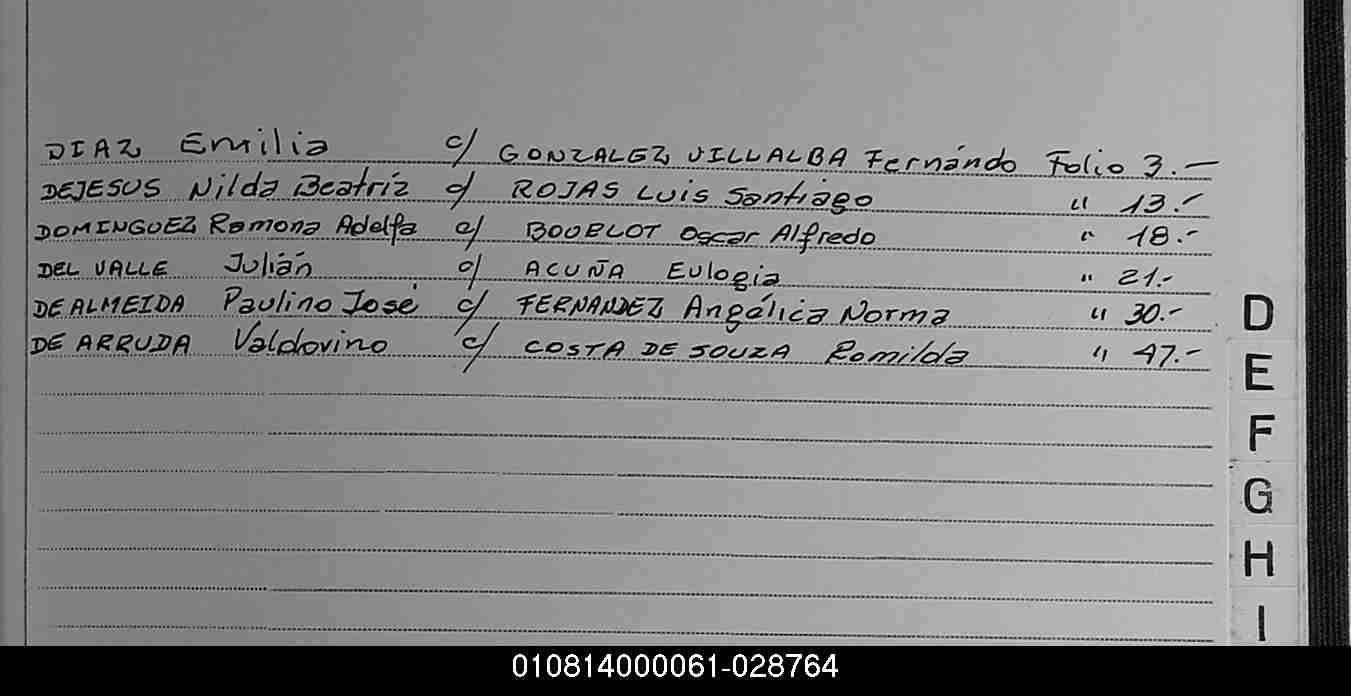 DIAZ Emilia c/ GONZALEZ VILLALBA Fernándo Folio 3.—
DEJESUS Nilda Beatríz c/ ROJAS Luis Santiago " 13.-
DOMINGUEZ Ramona Adelfa c/ BOUBLOT Oscar Alfredo " 18.-
DEL VALLE Julián c/ ACUÑA Eulogia " 21.-
DE ALMEIDA Paulino José c/ FERNANDEZ Angélica Norma " 30.-
DE ARRUDA Valdovino c/ COSTA DE SOUZA Romilda " 47.-
D
E
F
G
H
I
010814000061-028764